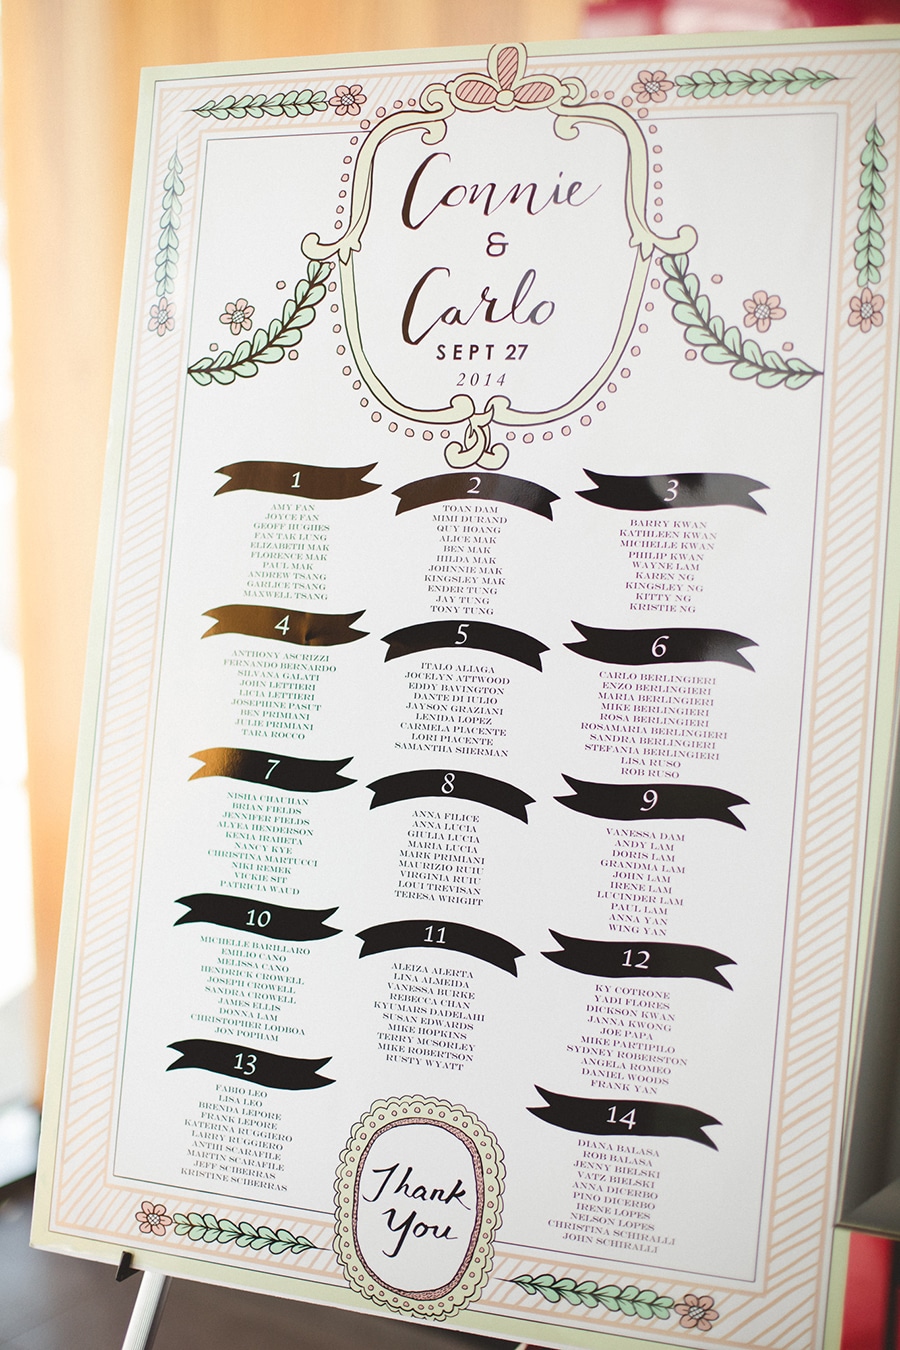 Connie
&
Carlo
SEPT 27
2014
1
AMY FAN
JOYCE FAN
GEOFF HUGHES
FAN TAK LUNG
ELIZABETH MAK
FLORENCE MAK
PAUL MAK
ANDREW TSANG
GARLICE TSANG
MAXWELL TSANG
2
TOAN DAM
MIMI DURAND
QUY HOANG
ALICE MAK
BEN MAK
HILDA MAK
JOHNNIE MAK
KINGSLEY MAK
ENDER TUNG
JAY TUNG
TONY TUNG
3
BARRY KWAN
KATHLEEN KWAN
MICHELLE KWAN
PHILIP KWAN
WAYNE LAM
KAREN NG
KINGSLEY NG
KITTY NG
KRISTIE NG
4
ANTHONY ASCRIZZI
FERNANDO BERNARDO
SILVANA GALATI
JOHN LETTIERI
LICIA LETTIERI
JOSEPHINE PASUT
BEN PRIMIANI
JULIE PRIMIANI
TARA ROCCO
5
ITALO ALIAGA
JOCELYN ATTWOOD
EDDY BAVINGTON
DANTE DI IULIO
JAYSON GRAZIANI
LENIDA LOPEZ
CARMELA PIACENTE
LORI PIACENTE
SAMANTHA SHERMAN
6
CARLO BERLINGIERI
ENZO BERLINGIERI
MARIA BERLINGIERI
MIKE BERLINGIERI
ROSA BERLINGIERI
ROSAMARIA BERLINGIERI
SANDRA BERLINGIERI
STEFANIA BERLINGIERI
LISA RUSO
ROB RUSO
7
NISHA CHAUHAN
BRIAN FIELDS
JENNIFER FIELDS
ALYEA HENDERSON
KENIA IRAHETA
NANCY KYE
CHRISTINA MARTUCCI
NIKI REMEK
VICKIE SIT
PATRICIA WAUD
8
ANNA FILICE
ANNA LUCIA
GIULIA LUCIA
MARIA LUCIA
MARK PRIMIANI
MAURIZIO RUIU
VIRGINIA RUIU
LOUI TREVISAN
TERESA WRIGHT
9
VANESSA DAM
ANDY LAM
DORIS LAM
GRANDMA LAM
JOHN LAM
IRENE LAM
LUCINDER LAM
PAUL LAM
ANNA YAN
WING YAN
10
MICHELLE BARILLARO
EMILIO CANO
MELISSA CANO
HENDRICK CROWELL
JOSEPH CROWELL
SANDRA CROWELL
JAMES ELLIS
DONNA LAM
CHRISTOPHER LODBOA
JON POPHAM
11
ALEIZA ALERTA
LINA ALMEIDA
VANESSA BURKE
REBECCA CHAN
KYUMARS DADELAHI
SUSAN EDWARDS
MIKE HOPKINS
TERRY MCSORLEY
MIKE ROBERTSON
RUSTY WYATT
12
KY COTRONE
YADI FLORES
DICKSON KWAN
JANNA KWONG
JOE PAPA
MIKE PARTIPILO
SYDNEY ROBERSTON
ANGELA ROMEO
DANIEL WOODS
FRANK YAN
13
FABIO LEO
LISA LEO
BRENDA LEPORE
FRANK LEPORE
KATERINA RUGGIERO
LARRY RUGGIERO
ANTHI SCARAFILE
MARTIN SCARAFILE
JEFF SCIBERRAS
KRISTINE SCIBERRAS
14
DIANA BALASA
ROB BALASA
JENNY BIELSKI
VATZ BIELSKI
ANNA DICERBO
PINO DICERBO
IRENE LOPES
NELSON LOPES
CHRISTINA SCHIRALLI
JOHN SCHIRALLI
Thank
You